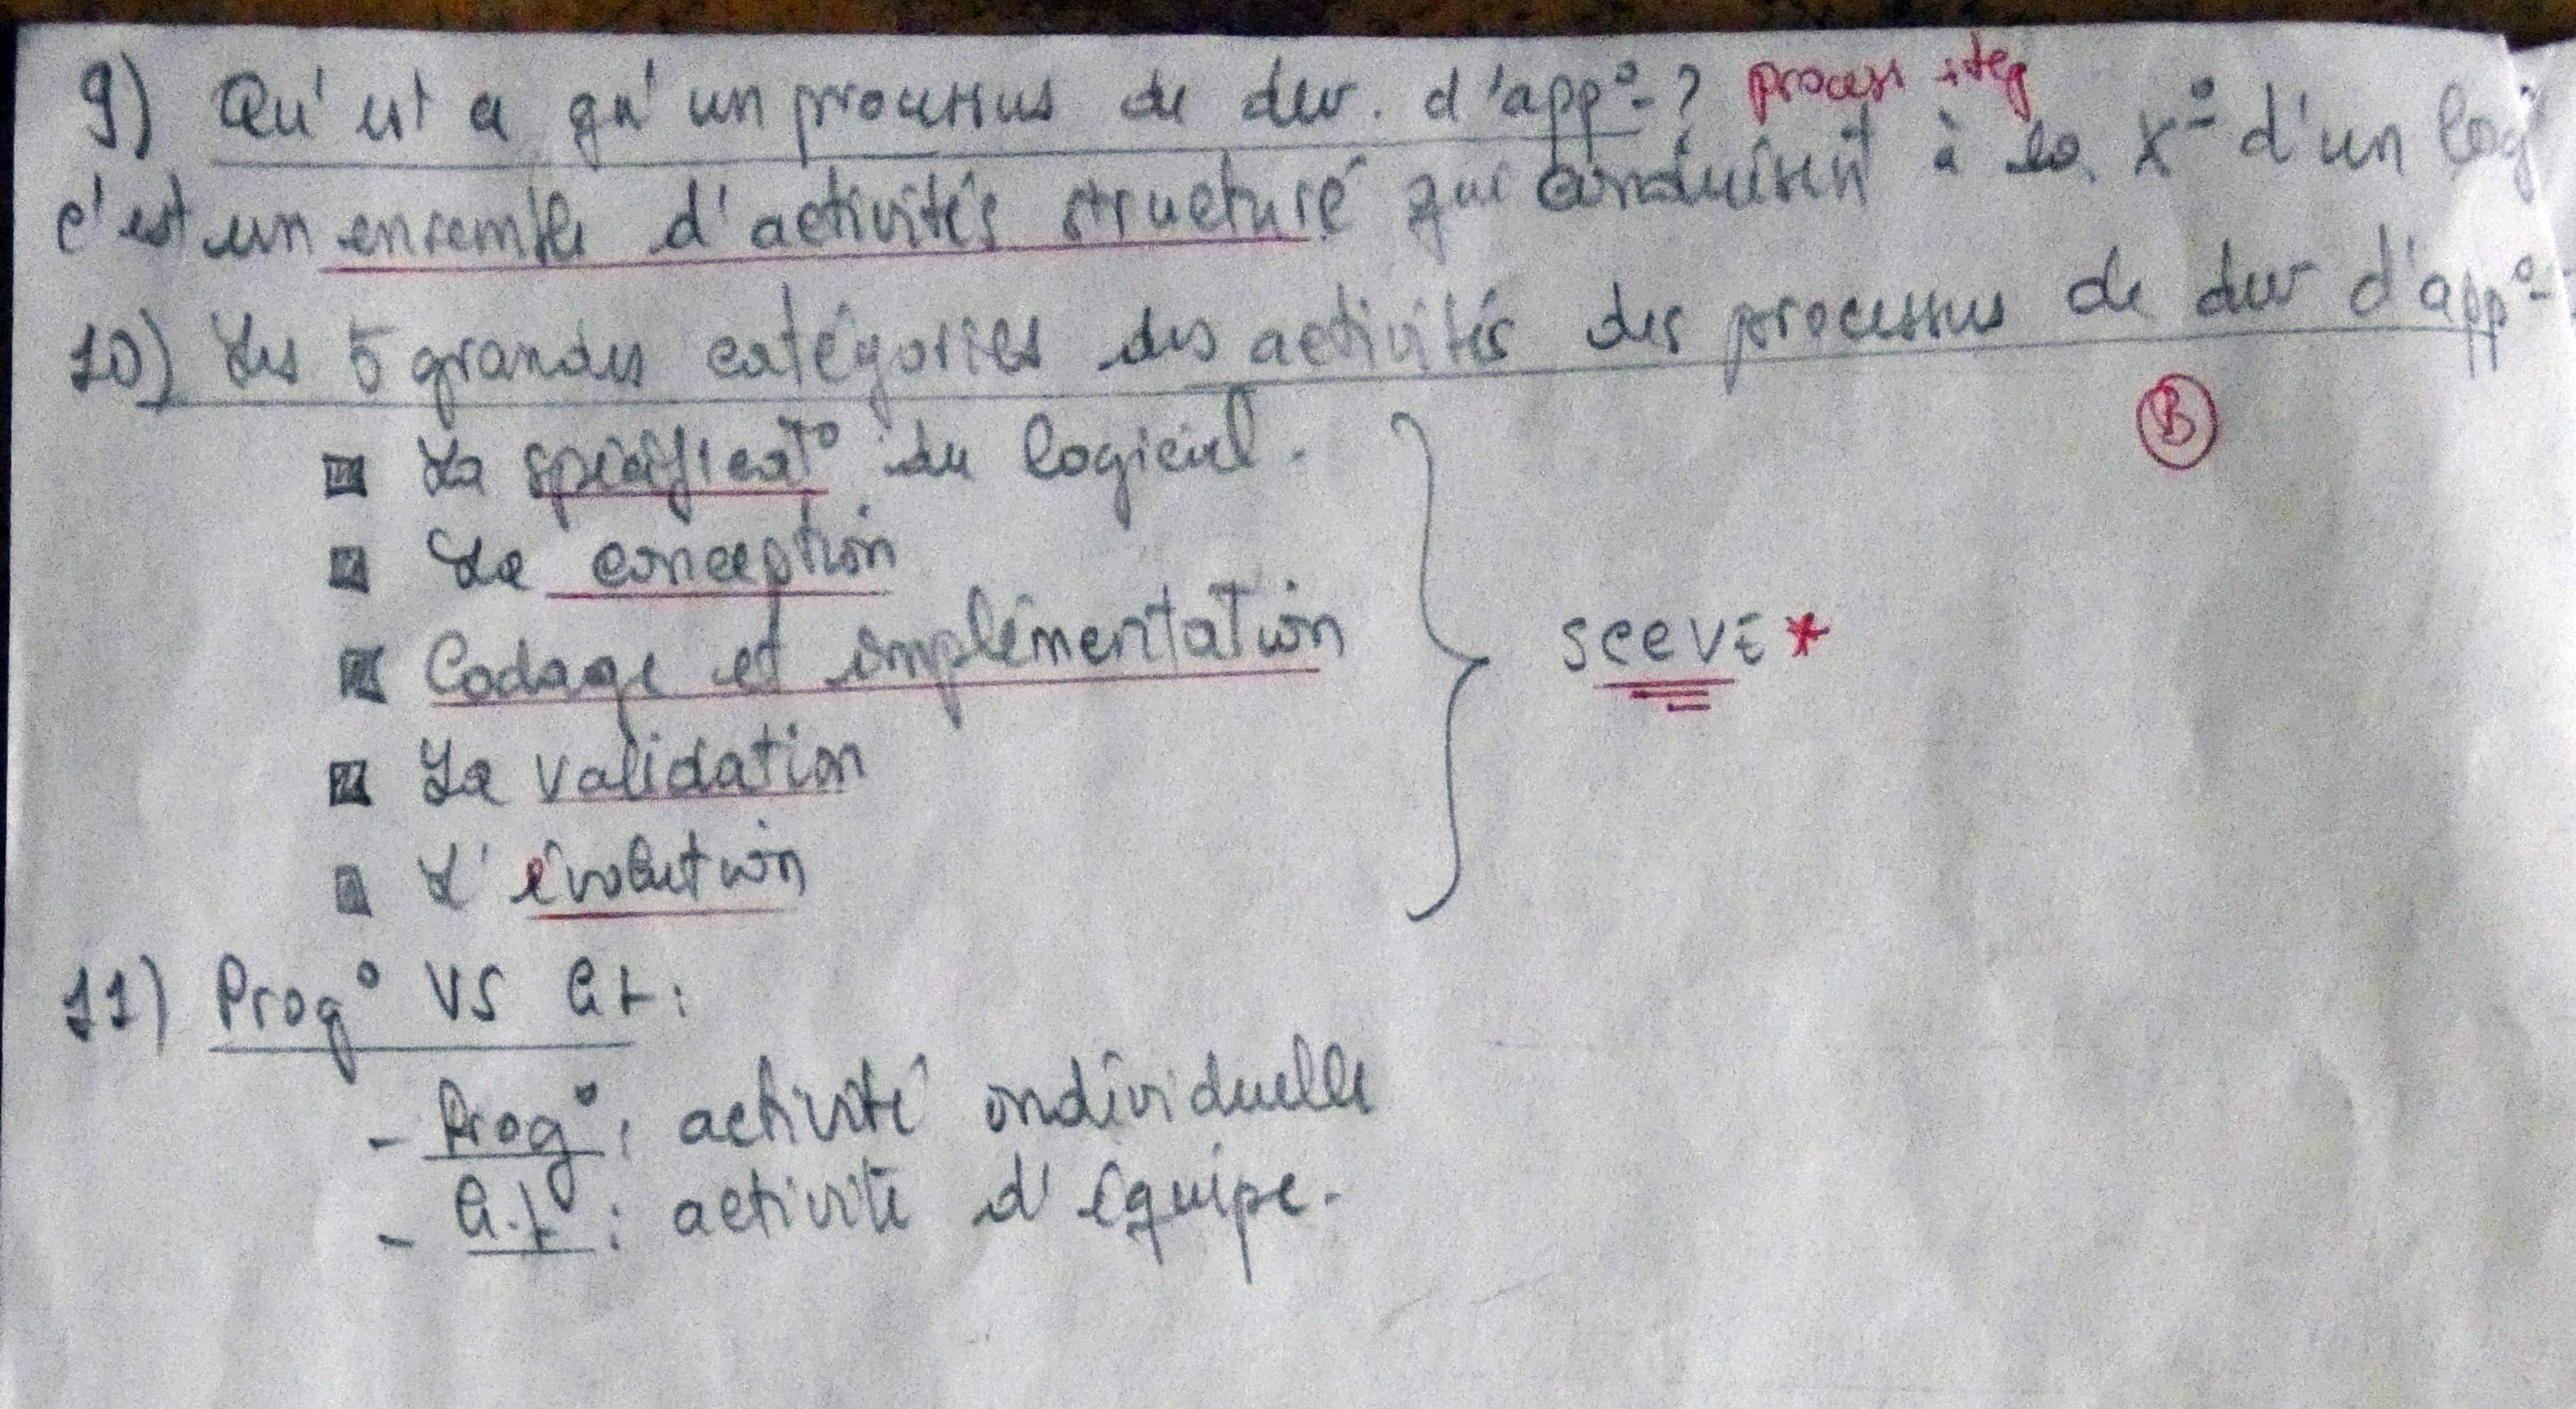 9) Qu'est ce qu'un processus de dev. d'app°- ? process
c'est un ensemble d'activités structuré qui conduisent à la X° d'un log
10) Les 5 grandes catégories des activités des processus de dev d'app°-
B
La spécificat° du logiciel.
La conception
Codage et implémentation
SCCVE *
La validation
L'évolution
11) Prog° VS GL :
- Prog° : activité individuelle
- G.L : activité d'équipe.